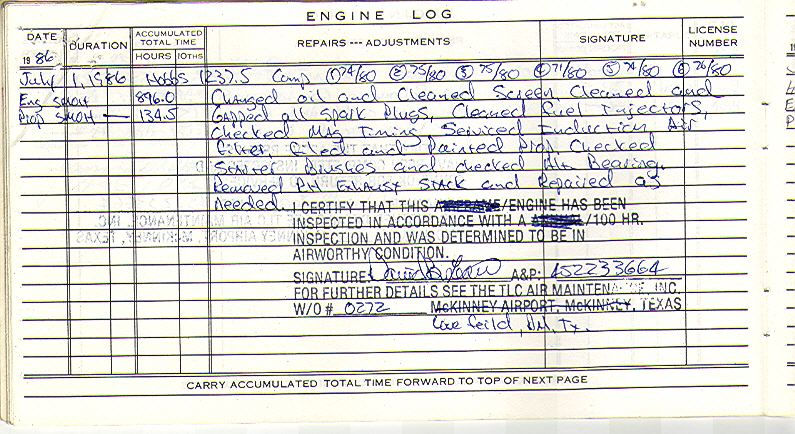 ENGINE LOG
DATE
1986
DURATION
ACCUMULATED TOTAL TIME
HOURS 10THS
REPAIRS --- ADJUSTMENTS
SIGNATURE
LICENSE NUMBER
July 1, 1986 Hobbs 1237.5 Comp ① 74/80 ② 75/80 ③ 75/80 ④ 71/80 ⑤ 74/80 ⑥ 76/80
Eng SMOH 896.0 Changed oil and Cleaned Screen Cleaned and
Prop SMOH — 134.5 Gapped all Spark Plugs, Cleaned Fuel Injectors,
Checked Mag Timing Serviced Induction Air
Filter, Filed and Painted Prop Checked
Starter Brushes and checked Alt Bearing,
Removed RH Exhaust Stack and Repaired as
Needed. I CERTIFY THAT THIS /ENGINE HAS BEEN
INSPECTED IN ACCORDANCE WITH A /100 HR.
INSPECTION AND WAS DETERMINED TO BE IN
AIRWORTHY CONDITION.
SIGNATURE: A&P: 452233664
FOR FURTHER DETAILS SEE THE TLC AIR MAINTENANCE INC.
W/O # 0272 McKINNEY AIRPORT, McKINNEY, TEXAS
Love feild, Dal, Tx.
CARRY ACCUMULATED TOTAL TIME FORWARD TO TOP OF NEXT PAGE